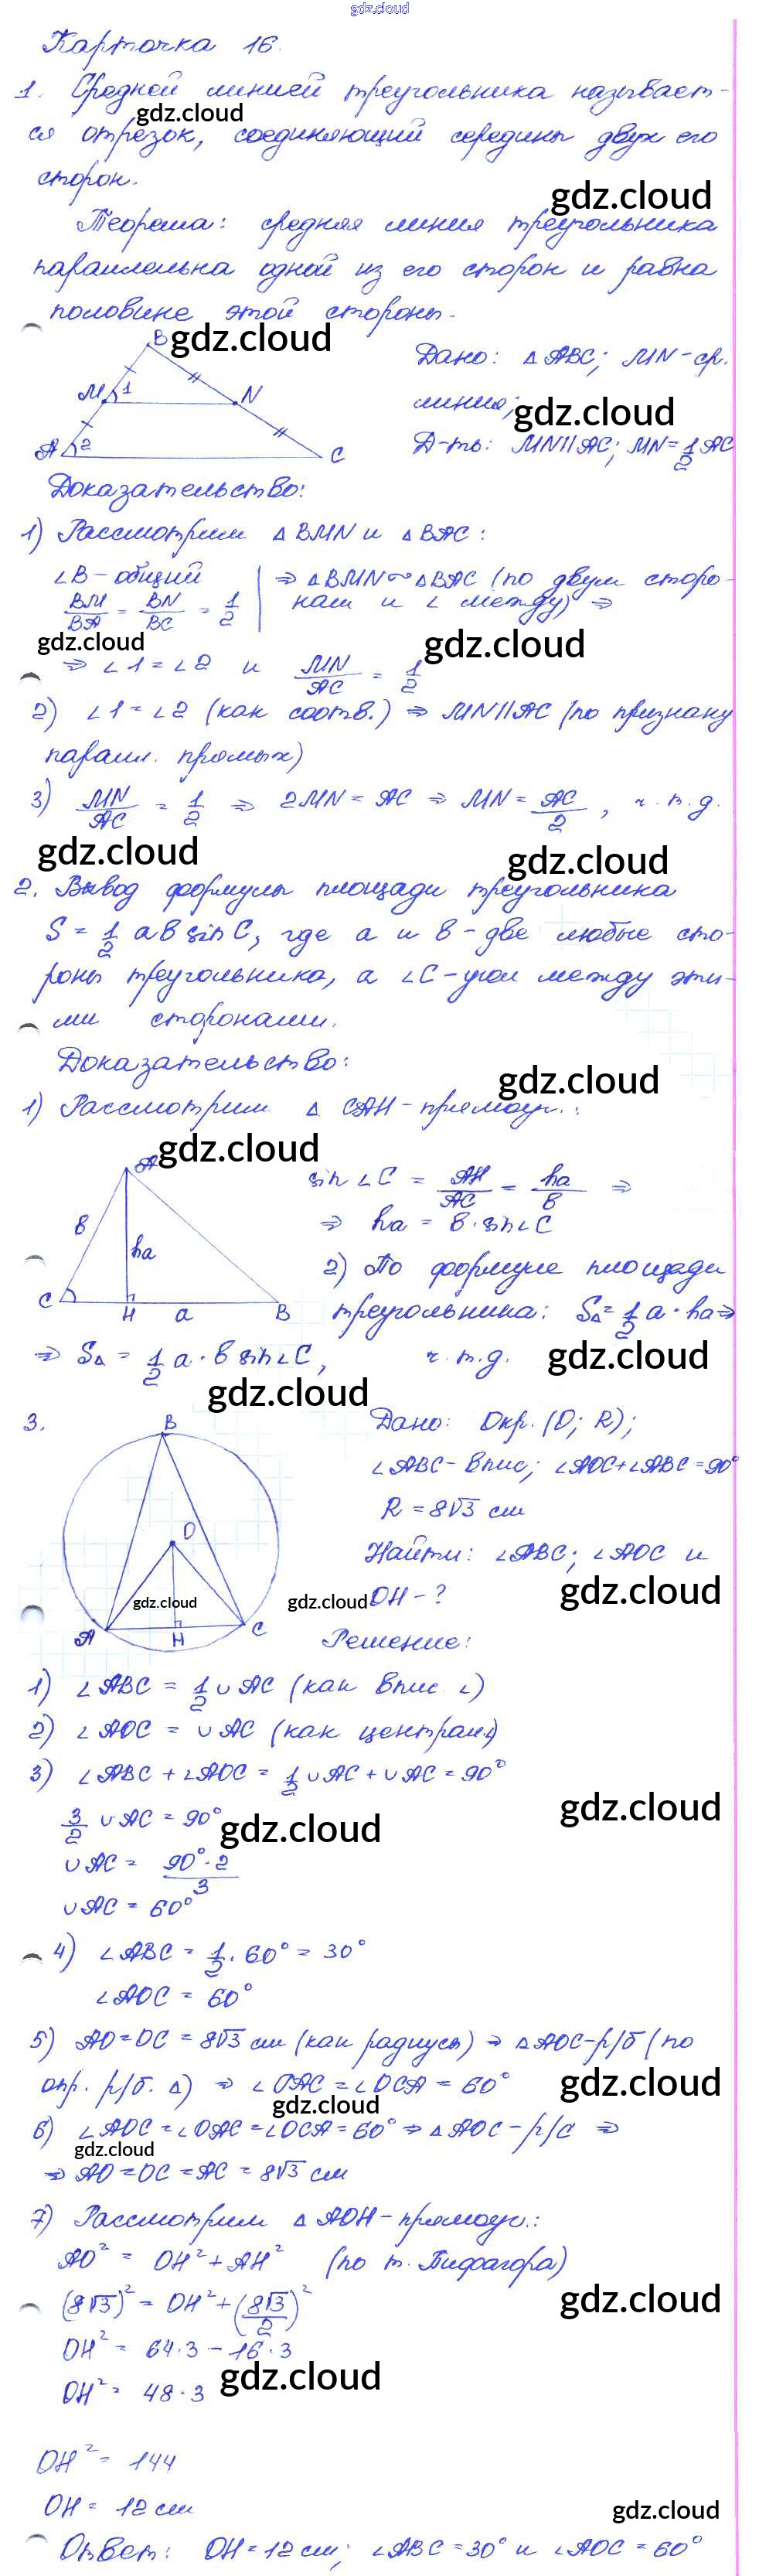 gdz.cloud
Карточка 16.
1. Средней линией треугольника называет-
gdz.cloud
ся отрезок, соединяющий середины двух его
сторон.
gdz.cloud
Теорема: средняя линия треугольника
параллельна одной из его сторон и равна
половине этой стороны.
gdz.cloud
B
M 1 N
A 2 C
Дано: △ABC; MN-ср.
линия;
gdz.cloud
Д-ть: MN||AC; MN=1/2 AC
Доказательство:
1) Рассмотрим △BMN и △BAC:
∠B-общий
BM/BA = BN/BC = 1/2
⇒ △BMN∾△BAC (по двум сторо-
нам и ∠ между) ⇒
gdz.cloud
gdz.cloud
⇒ ∠1=∠2 и MN/AC = 1/2
2) ∠1=∠2 (как соотв.) ⇒ MN||AC (по признаку
паралл. прямых)
3) MN/AC = 1/2 ⇒ 2MN = AC ⇒ MN = AC/2, ч.т.д.
gdz.cloud
gdz.cloud
2. Вывод формулы площади треугольника
S = 1/2 ab sin C, где a и b-две любые сто-
роны треугольника, а ∠C-угол между эти-
ми сторонами.
Доказательство:
gdz.cloud
1) Рассмотрим △ CAH-прямоуг.:
gdz.cloud
A
b
ha
C H a B
sin∠C = AH/AC = ha/b ⇒
⇒ ha = b·sin∠C
2) По формуле площади
треугольника: S△=1/2 a·ha⇒
⇒ S△ = 1/2 a·b sin∠C, ч.т.д.
gdz.cloud
gdz.cloud
3.
B
O
A H C
gdz.cloud
Дано: Окр.(O; R);
∠ABC-впис; ∠AOC+∠ABC=90°
R = 8√3 см
Найти: ∠ABC; ∠AOC и
gdz.cloud
gdz.cloud
OH-?
Решение:
1) ∠ABC = 1/2 ∪AC (как впис. ∠)
2) ∠AOC = ∪AC (как централ∠)
3) ∠ABC+∠AOC = 1/2 ∪AC+∪AC=90°
gdz.cloud
3/2 ∪AC = 90°
gdz.cloud
∪AC = 90°·2/3
∪AC = 60°
4) ∠ABC = 1/2·60° = 30°
∠AOC = 60°
5) AO=OC = 8√3 см (как радиусы) ⇒ △AOC-р/б (по
gdz.cloud
опр. р/б. △) ⇒ ∠OAC=∠OCA=60°
gdz.cloud
6) ∠AOC=∠OAC=∠OCA=60° ⇒ △AOC-р/с ⇒
gdz.cloud
⇒ AO=OC=AC=8√3 см
7) Рассмотрим △AOH-прямоуг.:
AO² = OH²+AH² (по т. Пифагора)
gdz.cloud
(8√3)² = OH²+(8√3/2)²
OH² = 64·3-16·3
gdz.cloud
OH² = 48·3
OH² = 144
OH = 12 см
gdz.cloud
Ответ: OH=12 см; ∠ABC=30° и ∠AOC=60°